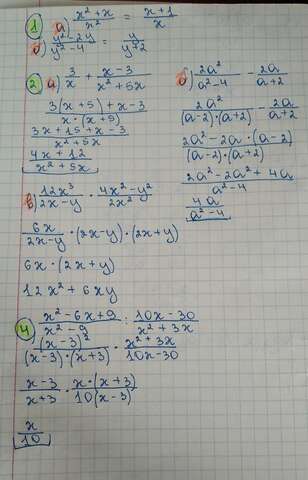 1) а) x²+x / x² = x+1 / x
б) y²-2y / y²-4 = y / y+2
2) а) 3/x + x-3 / x²+5x
3(x+5)+x-3 / x·(x+5)
3x+15+x-3 / x²+5x
4x+12 / x²+5x
б) 2a² / a²-4 - 2a / a+2
2a² / (a-2)·(a+2) - 2a / a+2
2a²-2a·(a-2) / (a-2)·(a+2)
2a²-2a²+4a / a²-4
4a / a²-4
в) 12x³ / 2x-y · 4x²-y² / 2x²
6x / 2x-y · (2x-y)·(2x+y)
6x·(2x+y)
12x²+6xy
4) x²-6x+9 / x²-9 : 10x-30 / x²+3x
(x-3)² / (x-3)·(x+3) · x²+3x / 10x-30
x-3 / x+3 · x·(x+3) / 10(x-3)
x / 10